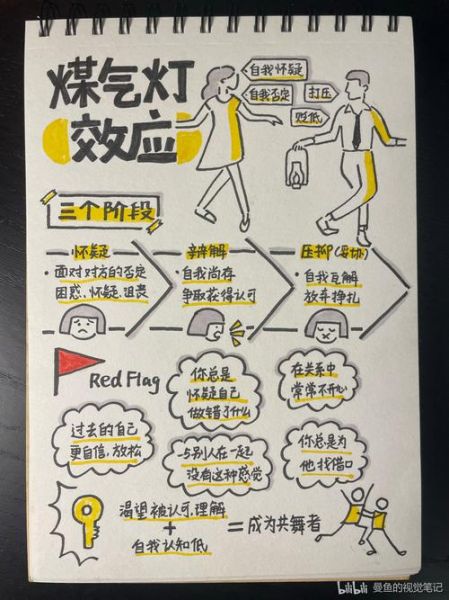 煤气灯
效应
自我怀疑
自我否定
打压
贬低
三个阶段
怀疑
·面对对方的否定
困惑、怀疑、沮丧
辩解
·自我尚存
争取获得认可
压抑(妥协)
·自我瓦解
放弃挣扎
Red Flag
你总是
怀疑自己
做错了什么
在关系中
常常不开心
过去的自己
更自信、放松
与别人在一起
没有这种感觉
你总是为
他找借口
渴望被认可、理解
+
自我认知低
=成为共舞者
bilibili 曼鱼的视觉笔记